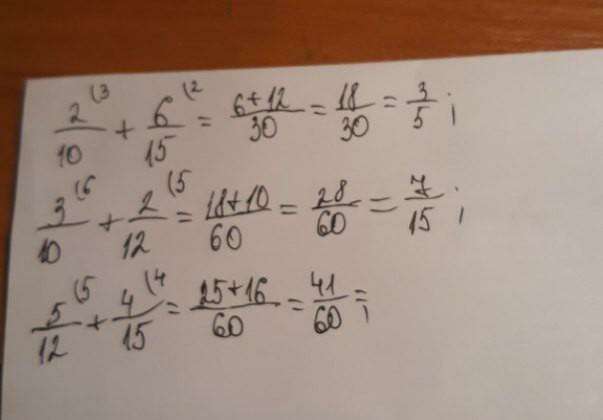 2/10 (3 + 6/15 (2 = 6+12/30 = 18/30 = 3/5 ;
3/10 (6 + 2/12 (5 = 18+10/60 = 28/60 = 7/15 ;
5/12 (5 + 4/15 (4 = 25+16/60 = 41/60 = ;